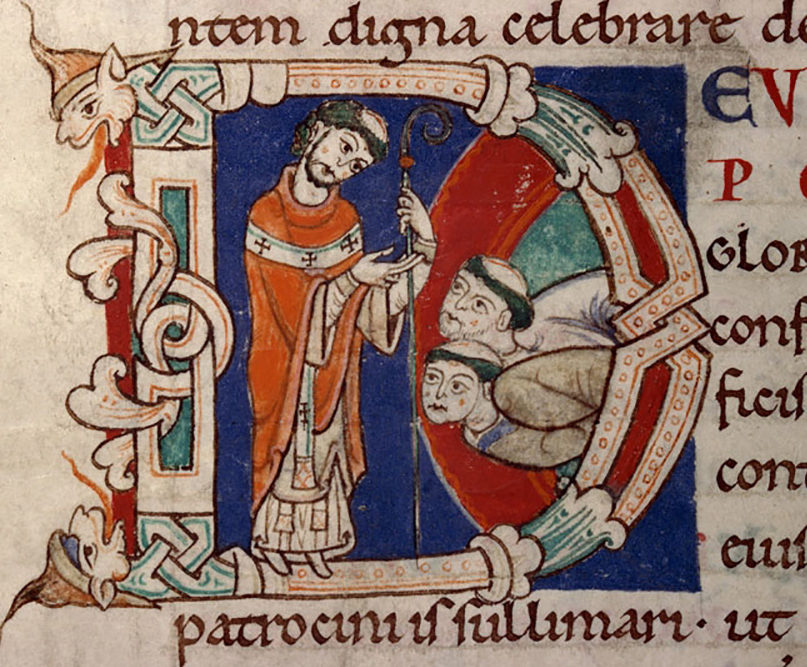 ntem digna celebrare de
DEV
P
GLOR
conf
ficis
cont
eius
patrociniis sullimari· ut